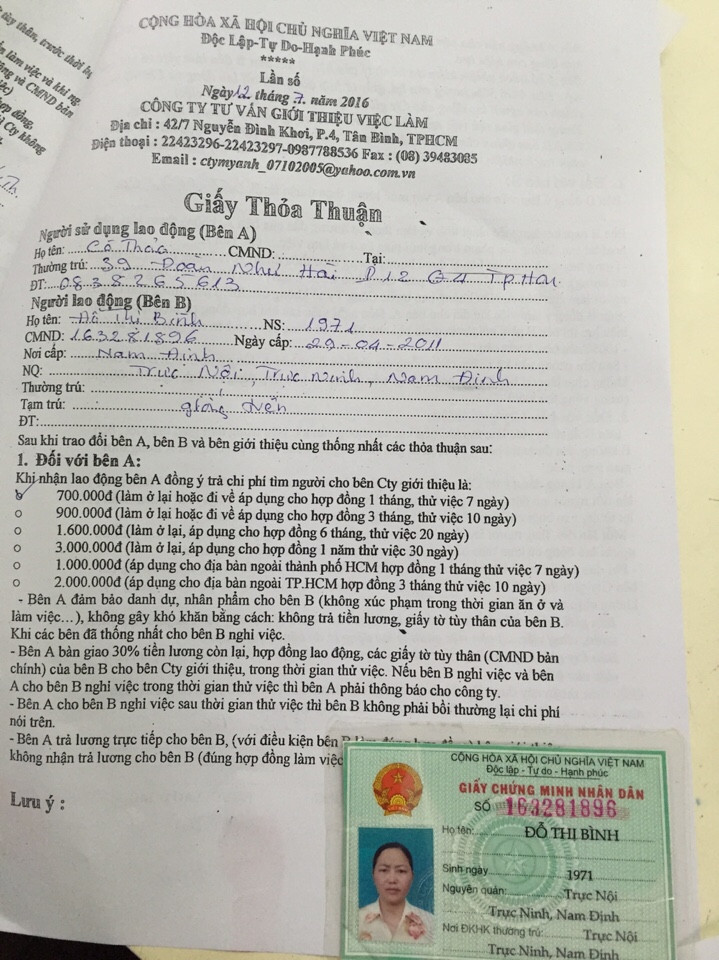 CỘNG HÒA XÃ HỘI CHỦ NGHĨA VIỆT NAM
Độc Lập-Tự Do-Hạnh Phúc
*****
Lần số
Ngày 12 tháng 7. năm 2016
CÔNG TY TƯ VẤN GIỚI THIỆU VIỆC LÀM
Địa chỉ : 42/7 Nguyễn Đình Khơi, P.4, Tân Bình, TPHCM
Điện thoại : 22423296-22423297-0987788536 Fax : (08) 39483085
Email : ctymyanh_07102005@yahoo.com.vn
tùy thân, trước thời hạ
làm việc và khi ng
và CMND bản
việc)
hợp đồng,
Cty không
Giấy Thỏa Thuận
Người sử dụng lao động (Bên A)
Họ tên: Cô Thảo CMND: Tại:
Thường trú: 39 Đoàn Như Hài P12 Q4 Tp Hcm
ĐT: 0838265613
Người lao động (Bên B)
Họ tên: Đỗ Thị Bình NS: 1971
CMND: 163281896 Ngày cấp: 29-04-2011
Nơi cấp: Nam Định
NQ: Trực Nội, Trực Ninh, Nam Định
Thường trú:
Tạm trú: giống trên
ĐT:
Sau khi trao đổi bên A, bên B và bên giới thiệu cùng thống nhất các thỏa thuận sau:
1. Đối với bên A:
Khi nhận lao động bên A đồng ý trả chi phí tìm người cho bên Cty giới thiệu là:
700.000đ (làm ở lại hoặc đi về áp dụng cho hợp đồng 1 tháng, thử việc 7 ngày)
o 900.000đ (làm ở lại hoặc đi về áp dụng cho hợp đồng 3 tháng, thử việc 10 ngày)
o 1.600.000đ (làm ở lại, áp dụng cho hợp đồng 6 tháng, thử việc 20 ngày)
o 3.000.000đ (làm ở lại, áp dụng cho hợp đồng 1 năm thử việc 30 ngày)
o 1.000.000đ (áp dụng cho địa bàn ngoài thành phố HCM hợp đồng 1 tháng thử việc 7 ngày)
o 2.000.000đ (áp dụng cho địa bàn ngoài TP.HCM hợp đồng 3 tháng thử việc 10 ngày)
- Bên A đảm bảo danh dự, nhân phẩm cho bên B (không xúc phạm trong thời gian ăn ở và
làm việc…), không gây khó khăn bằng cách: không trả tiền lương, giấy tờ tùy thân của bên B.
Khi các bên đã thống nhất cho bên B nghỉ việc.
- Bên A bàn giao 30% tiền lương còn lại, hợp đồng lao động, các giấy tờ tùy thân (CMND bản
chính) của bên B cho bên Cty giới thiệu, trong thời gian thử việc. Nếu bên B nghỉ việc và bên
A cho bên B nghỉ việc trong thời gian thử việc thì bên A phải thông báo cho công ty.
- Bên A cho bên B nghỉ việc sau thời gian thử việc thì bên B không phải bồi thường lại chi phí
nói trên.
- Bên A trả lương trực tiếp cho bên B, (với điều kiện bên B
không nhận trả lương cho bên B (đúng hợp đồng làm việc
Lưu ý :
CỘNG HÒA XÃ HỘI CHỦ NGHĨA VIỆT NAM
Độc lập - Tự do - Hạnh phúc
GIẤY CHỨNG MINH NHÂN DÂN
SỐ 163281896
Họ tên: ĐỖ THỊ BÌNH
Sinh ngày 1971
Nguyên quán: Trực Nội
Trực Ninh, Nam Định
Nơi ĐKHK thường trú: Trực Nội
Trực Ninh, Nam Định